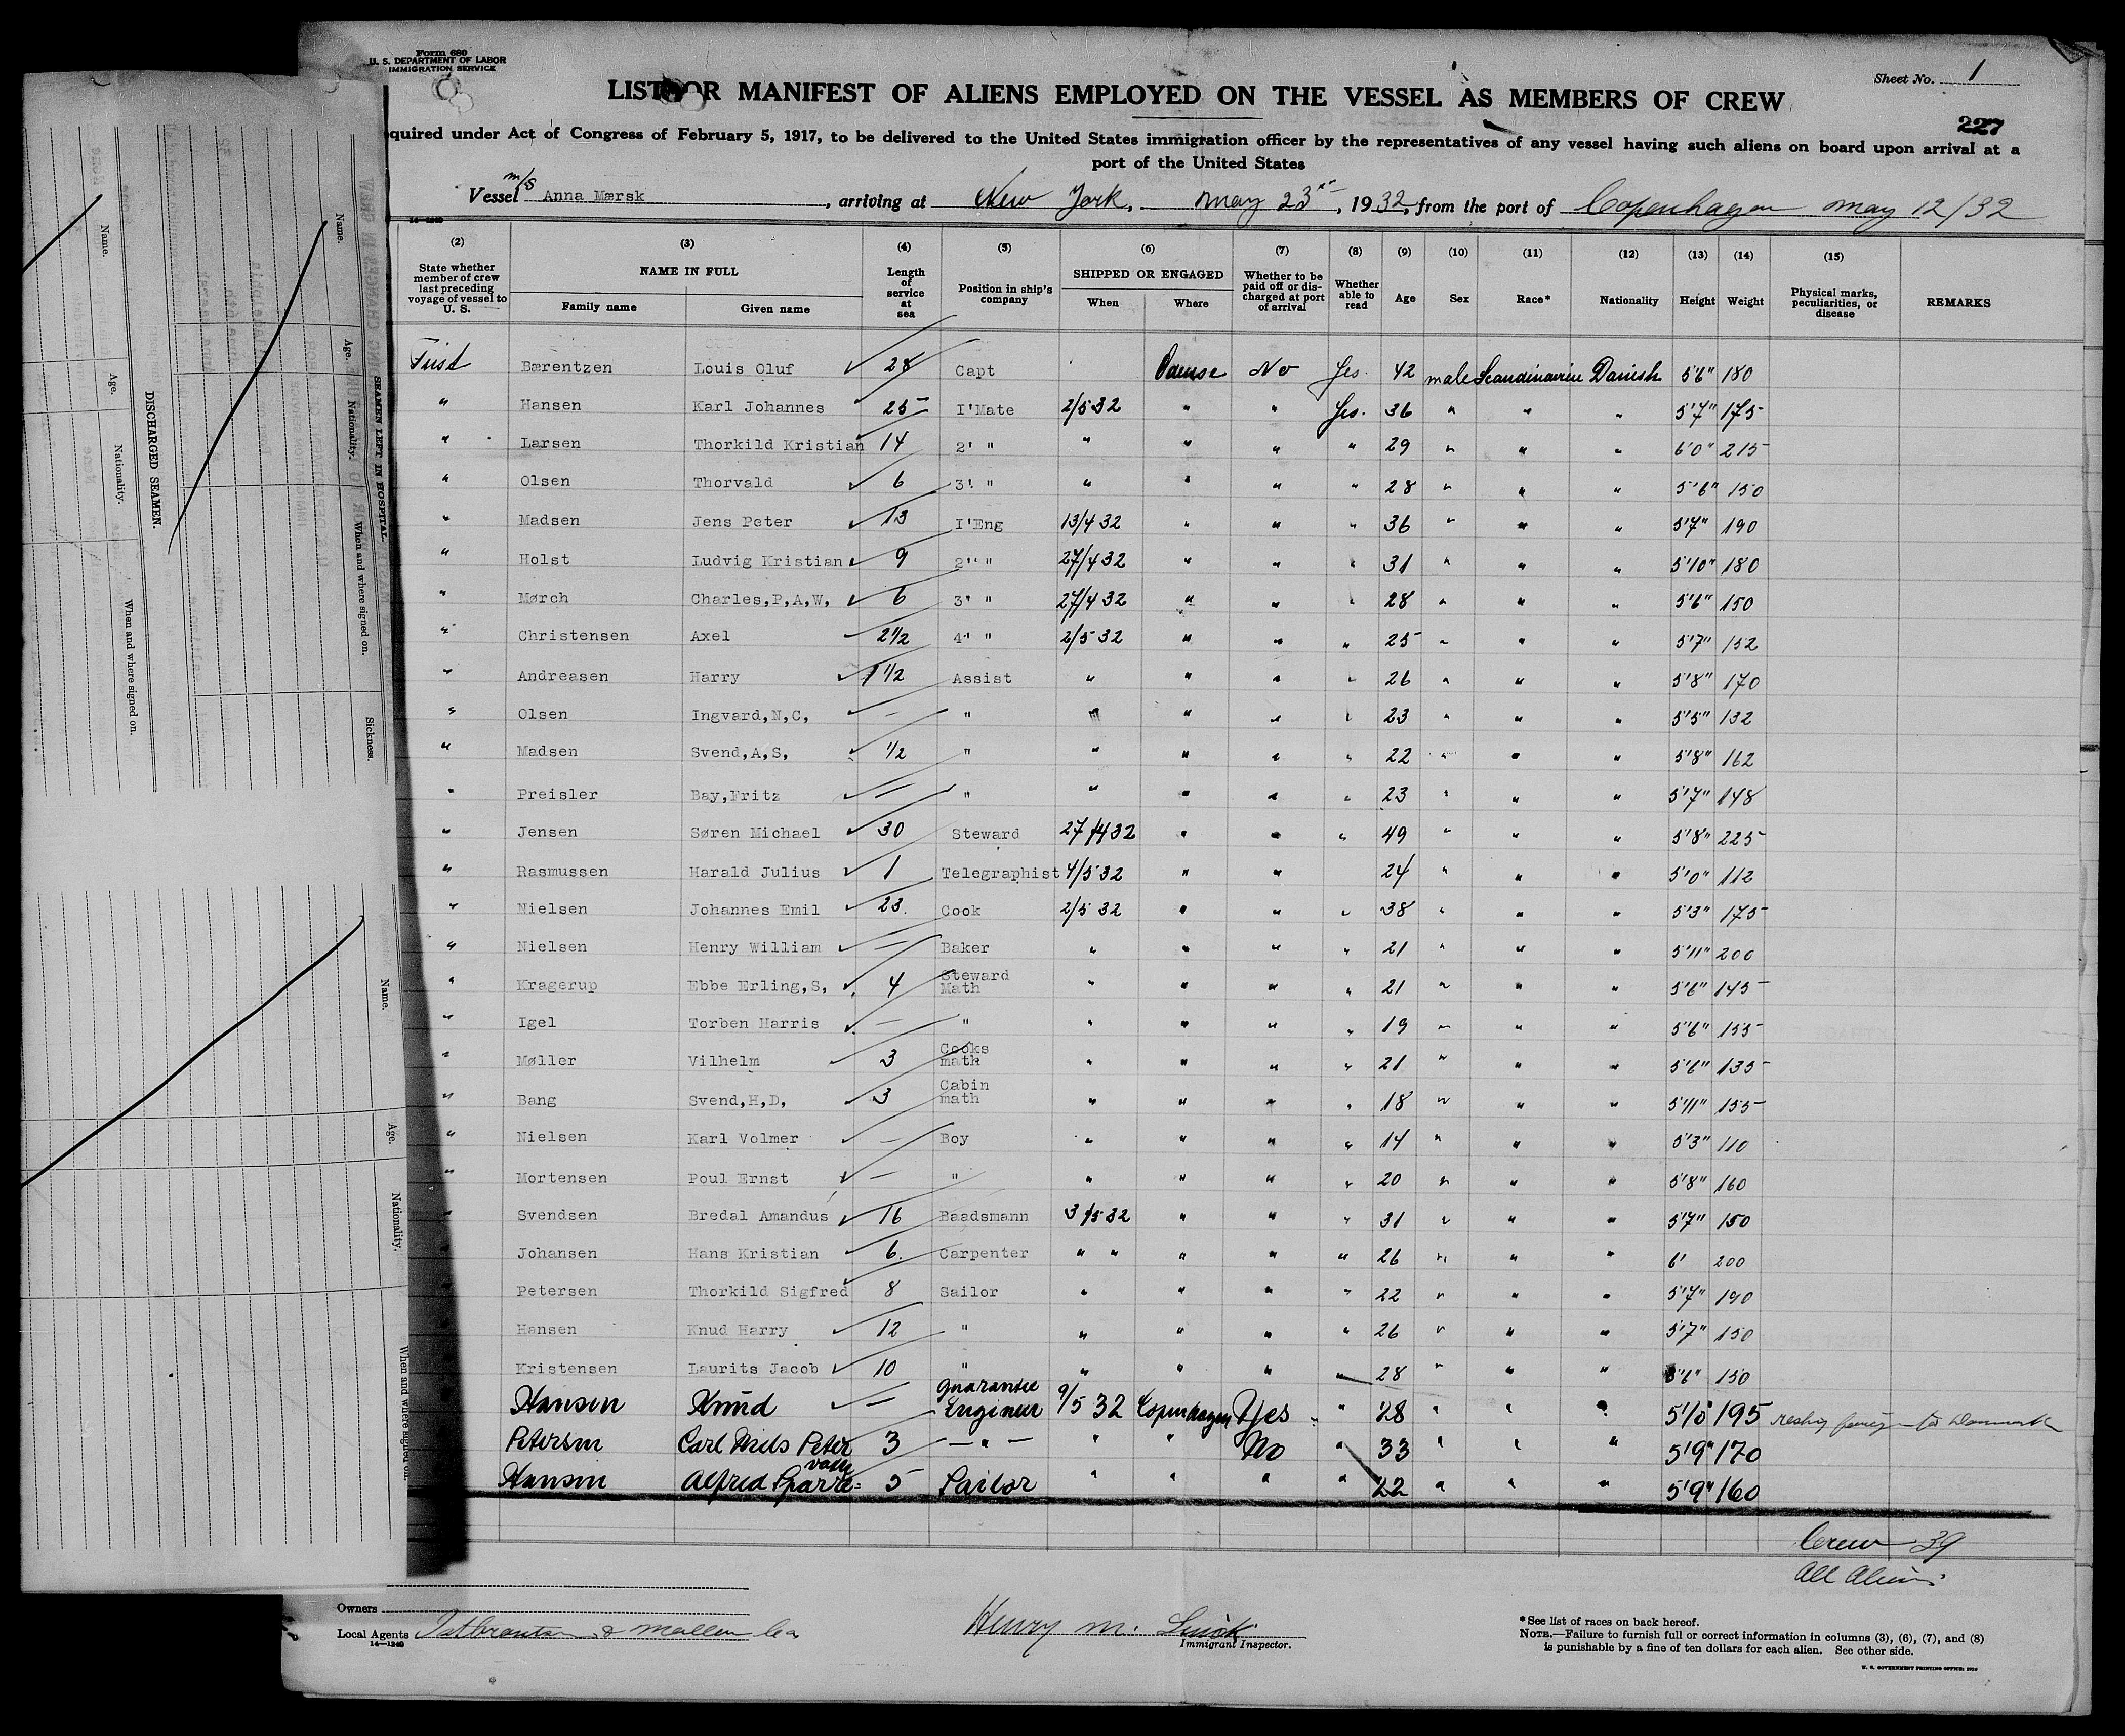 Form 680
U. S. DEPARTMENT OF LABOR
IMMIGRATION SERVICE
Sheet No. 1
LIST OR MANIFEST OF ALIENS EMPLOYED ON THE VESSEL AS MEMBERS OF CREW
227
quired under Act of Congress of February 5, 1917, to be delivered to the United States immigration officer by the representatives of any vessel having such aliens on board upon arrival at a
port of the United States
Vessel m/s Anna Mærsk, arriving at New York, May 23, 1932, from the port of Copenhagen May 12/32
(2) (3) (4) (5) (6) (7) (8) (9) (10) (11) (12) (13) (14) (15)
State whether member of crew last preceding voyage of vessel to U. S. NAME IN FULL Family name Given name Length of service at sea Position in ship's company SHIPPED OR ENGAGED When Where Whether to be paid off or discharged at port of arrival Whether able to read Age Sex Race* Nationality Height Weight Physical marks, peculiarities, or disease REMARKS
First Bærentzen Louis Oluf 28 Capt Odense No Yes. 42 male Scandinavian Danish 5'6" 180
" Hansen Karl Johannes 25 I'Mate 2/5 32 " " Yes. 36 " " " 5'7" 175
" Larsen Thorkild Kristian 14 2' " " " " " 29 " " " 6'0" 215
" Olsen Thorvald 6 3' " " " " " 28 " " " 5'6" 150
" Madsen Jens Peter 13 I'Eng 13/4 32 " " " 36 " " " 5'7" 190
" Holst Ludvig Kristian 9 2' " 27/4 32 " " " 31 " " " 5'10" 180
" Mørch Charles,P,A,W, 6 3' " 27/4 32 " " " 28 " " " 5'6" 150
" Christensen Axel 2½ 4' " 2/5 32 " " " 25 " " " 5'7" 152
" Andreasen Harry 1½ Assist " " " " 26 " " " 5'8" 170
" Olsen Ingvard,N,C, — " " " " " 23 " " " 5'5" 132
" Madsen Svend,A,S, ½ " " " " " 22 " " " 5'8" 162
" Preisler Bay,Fritz — " " " " " 23 " " " 5'7" 148
" Jensen Søren Michael 30 Steward 27/4 32 " " " 49 " " " 5'8" 225
" Rasmussen Harald Julius 1 Telegraphist 4/5 32 " " 24 " " " 5'0" 112
" Nielsen Johannes Emil 23. Cook 2/5 32 " " " 38 " " " 5'3" 175
" Nielsen Henry William — Baker " " " " 21 " " " 5'11" 200
" Kragerup Ebbe Erling,S, 4 Steward Math " " " " 21 " " " 5'6" 145
" Igel Torben Harris — " " " " " 19 " " " 5'6" 155
" Møller Vilhelm 3 Cooks math " " " " 21 " " " 5'6" 135
" Bang Svend,H,D, 3 Cabin math " " " " 18 " " " 5'11" 155
" Nielsen Karl Volmer — Boy " " " " 14 " " " 5'3" 110
" Mortensen Poul Ernst — " " " " " 20 " " " 5'8" 160
" Svendsen Bredal Amandus 16 Baadsmann 3/5 32 " " " 31 " " " 5'7" 150
Johansen Hans Kristian 6. Carpenter " " " " " 26 " " " 6' 200
Petersen Thorkild Sigfred 8 Sailor " " " " 22 " " " 5'7" 190
Hansen Knud Harry 12 " " " " " 26 " " " 5'7" 150
Kristensen Laurits Jacob 10 " " " " " 28 " " " 5'6" 150
Hansen Knud — Guarantee Engineer 9/5 32 Copenhagen Yes " 28 " " " 195 to Denmark
Petersen Carl Niels Peter 3 — " — " " No " 33 " " " 5'9" 170
Hansen Alfred Sparre= 5 Sailor " " " " 22 " " " 5'9" 160
Crew 39
All Aliens
Owners
Local Agents
14—1240
Henry M.
Immigrant Inspector.
*See list of races on back hereof.
NOTE.—Failure to furnish full or correct information in columns (3), (6), (7), and (8)
is punishable by a fine of ten dollars for each alien. See other side.
U. S. GOVERNMENT PRINTING OFFICE
SEAMEN LEFT IN HOSPITAL.
Name. Age. Nationality. When and where signed on. Sickness.
DISCHARGED SEAMEN.
Name. Age. Nationality. When and where signed on.
Name. Age. Nationality. When and where signed on.